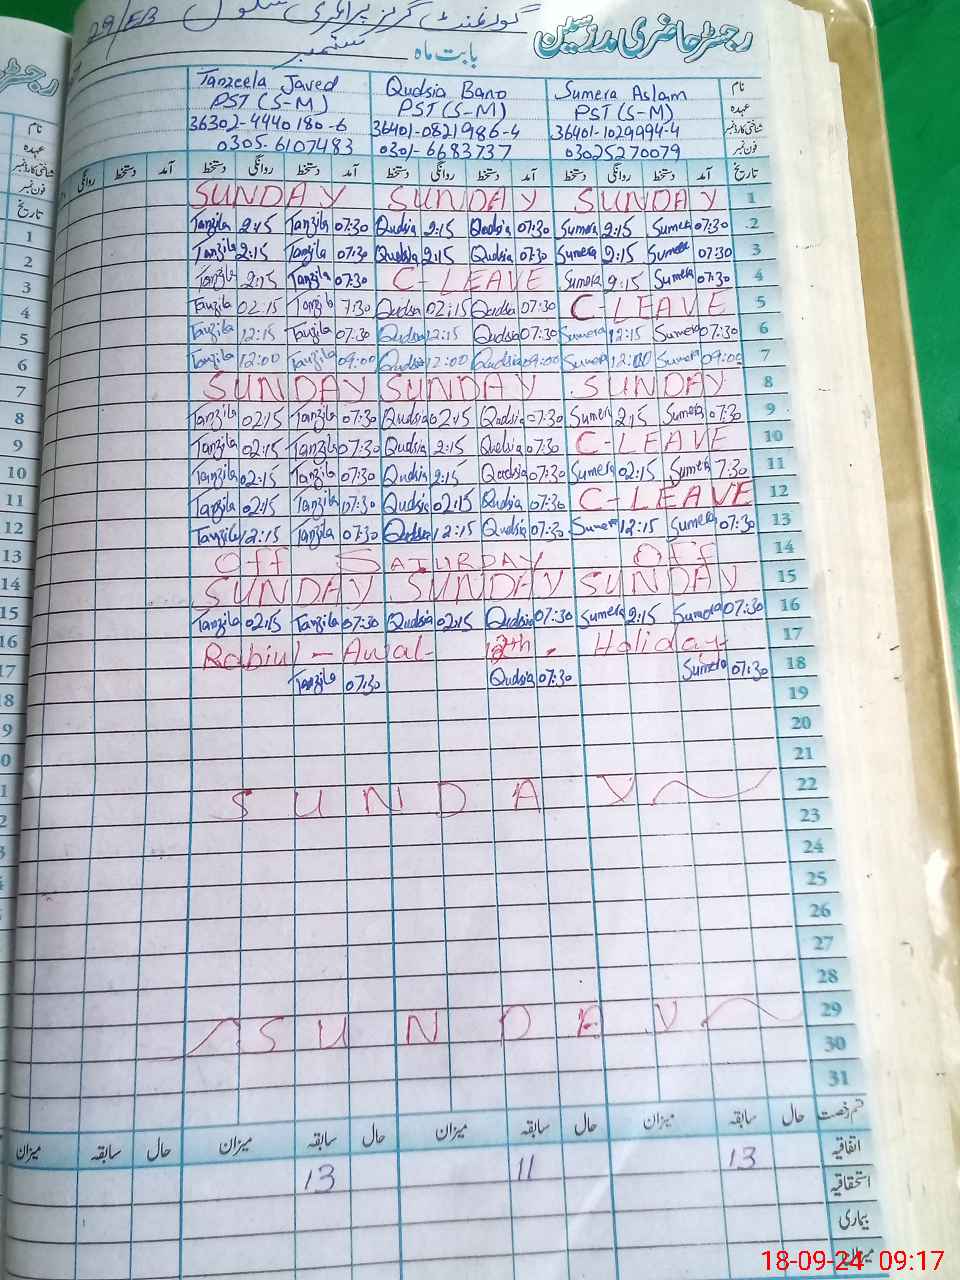 رجسٹر حاضری مدرسین
گورنمنٹ گرلز پرائمری سکول 29/EB
بابت ماہ ستمبر
نام Sumera Aslam Qudsia Bano Tanzeela Javed
عہدہ PST (S-M) PST (S-M) PST (S-M)
شناختی کارڈ نمبر 36401-1029994-4 36401-0821986-4 36302-4440180-6
فون نمبر 03025270079 0301-6683737 0305-6107483
تاریخ آمد دستخط روانگی دستخط آمد دستخط روانگی دستخط آمد دستخط روانگی دستخط آمد دستخط روانگی
SUNDAY SUNDAY SUNDAY 1
Tanzila 2:15 Tanzila 07:30 Qudsia 2:15 Qudsia 07:30 Sumera 2:15 Sumera 07:30 2
Tanzila 2:15 Tanzila 07:30 Qudsia 2:15 Qudsia 07:30 Sumera 2:15 Sumera 07:30 3
Tanzila 2:15 Tanzila 07:30 C-LEAVE Sumera 2:15 Sumera 07:30 4
Tanzila 02:15 Tanzila 7:30 Qudsia 02:15 Qudsia 07:30 C-LEAVE 5
Tanzila 12:15 Tanzila 07:30 Qudsia 12:15 Qudsia 07:30 Sumera 12:15 Sumera 07:30 6
Tanzila 12:00 Tanzila 09:00 Qudsia 12:00 Qudsia 09:00 Sumera 12:00 Sumera 09:00 7
SUNDAY SUNDAY SUNDAY 8
Tanzila 02:15 Tanzila 07:30 Qudsia 02:15 Qudsia 07:30 Sumera 2:15 Sumera 07:30 9
Tanzila 02:15 Tanzila 07:30 Qudsia 2:15 Qudsia 07:30 C-LEAVE 10
Tanzila 02:15 Tanzila 07:30 Qudsia 2:15 Qudsia 07:30 Sumera 02:15 Sumera 7:30 11
Tanzila 02:15 Tanzila 07:30 Qudsia 02:15 Qudsia 07:30 C-LEAVE 12
Tanzila 12:15 Tanzila 07:30 Qudsia 12:15 Qudsia 07:30 Sumera 12:15 Sumera 07:30 13
Off SATURDAY Off 14
SUNDAY SUNDAY SUNDAY 15
Tanzila 02:15 Tanzila 07:30 Qudsia 02:15 Qudsia 07:30 Sumera 2:15 Sumera 07:30 16
Rabiul-Awal 12th. Holiday 17
Tanzila 07:30 Qudsia 07:30 Sumera 07:30 18
19
20
21
SUNDAY 22
23
24
25
26
27
28
SUNDAY 29
30
31
قسم رخصت حال سابقہ میزان حال سابقہ میزان حال سابقہ میزان حال سابقہ میزان
اتفاقیہ 13 11 13
استحقاقیہ
بیماری
میزان
رجسٹر
نام
عہدہ
شناختی کارڈ نمبر
فون نمبر
تاریخ
1
2
3
4
5
6
7
8
9
10
11
12
13
14
15
16
18-09-24 09:17